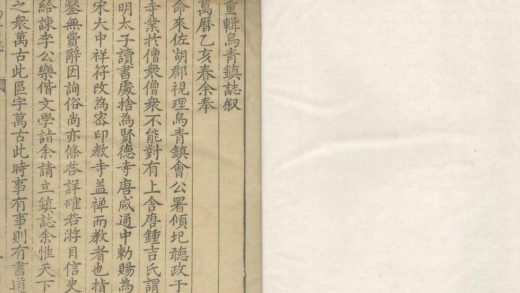 重輯烏青鎮誌叙
萬曆乙亥春余奉
命來佐胡郡視理烏青鎮會公署傾圯聽政于
寺業於僧衆僧衆不能對有上舍唐鍾吉氏謂
明太子讀書處捨為賢德寺唐咸通中勑賜為
宋大中祥符改為宻印教寺盖禅而教者也指
鑿無費辭因詢俗尚亦條荅詳確若㳺目信史
給諫李公樂偕文學諸余請立鎮誌余惟天下
之衆萬古此區宇萬古此時事有事則有書道